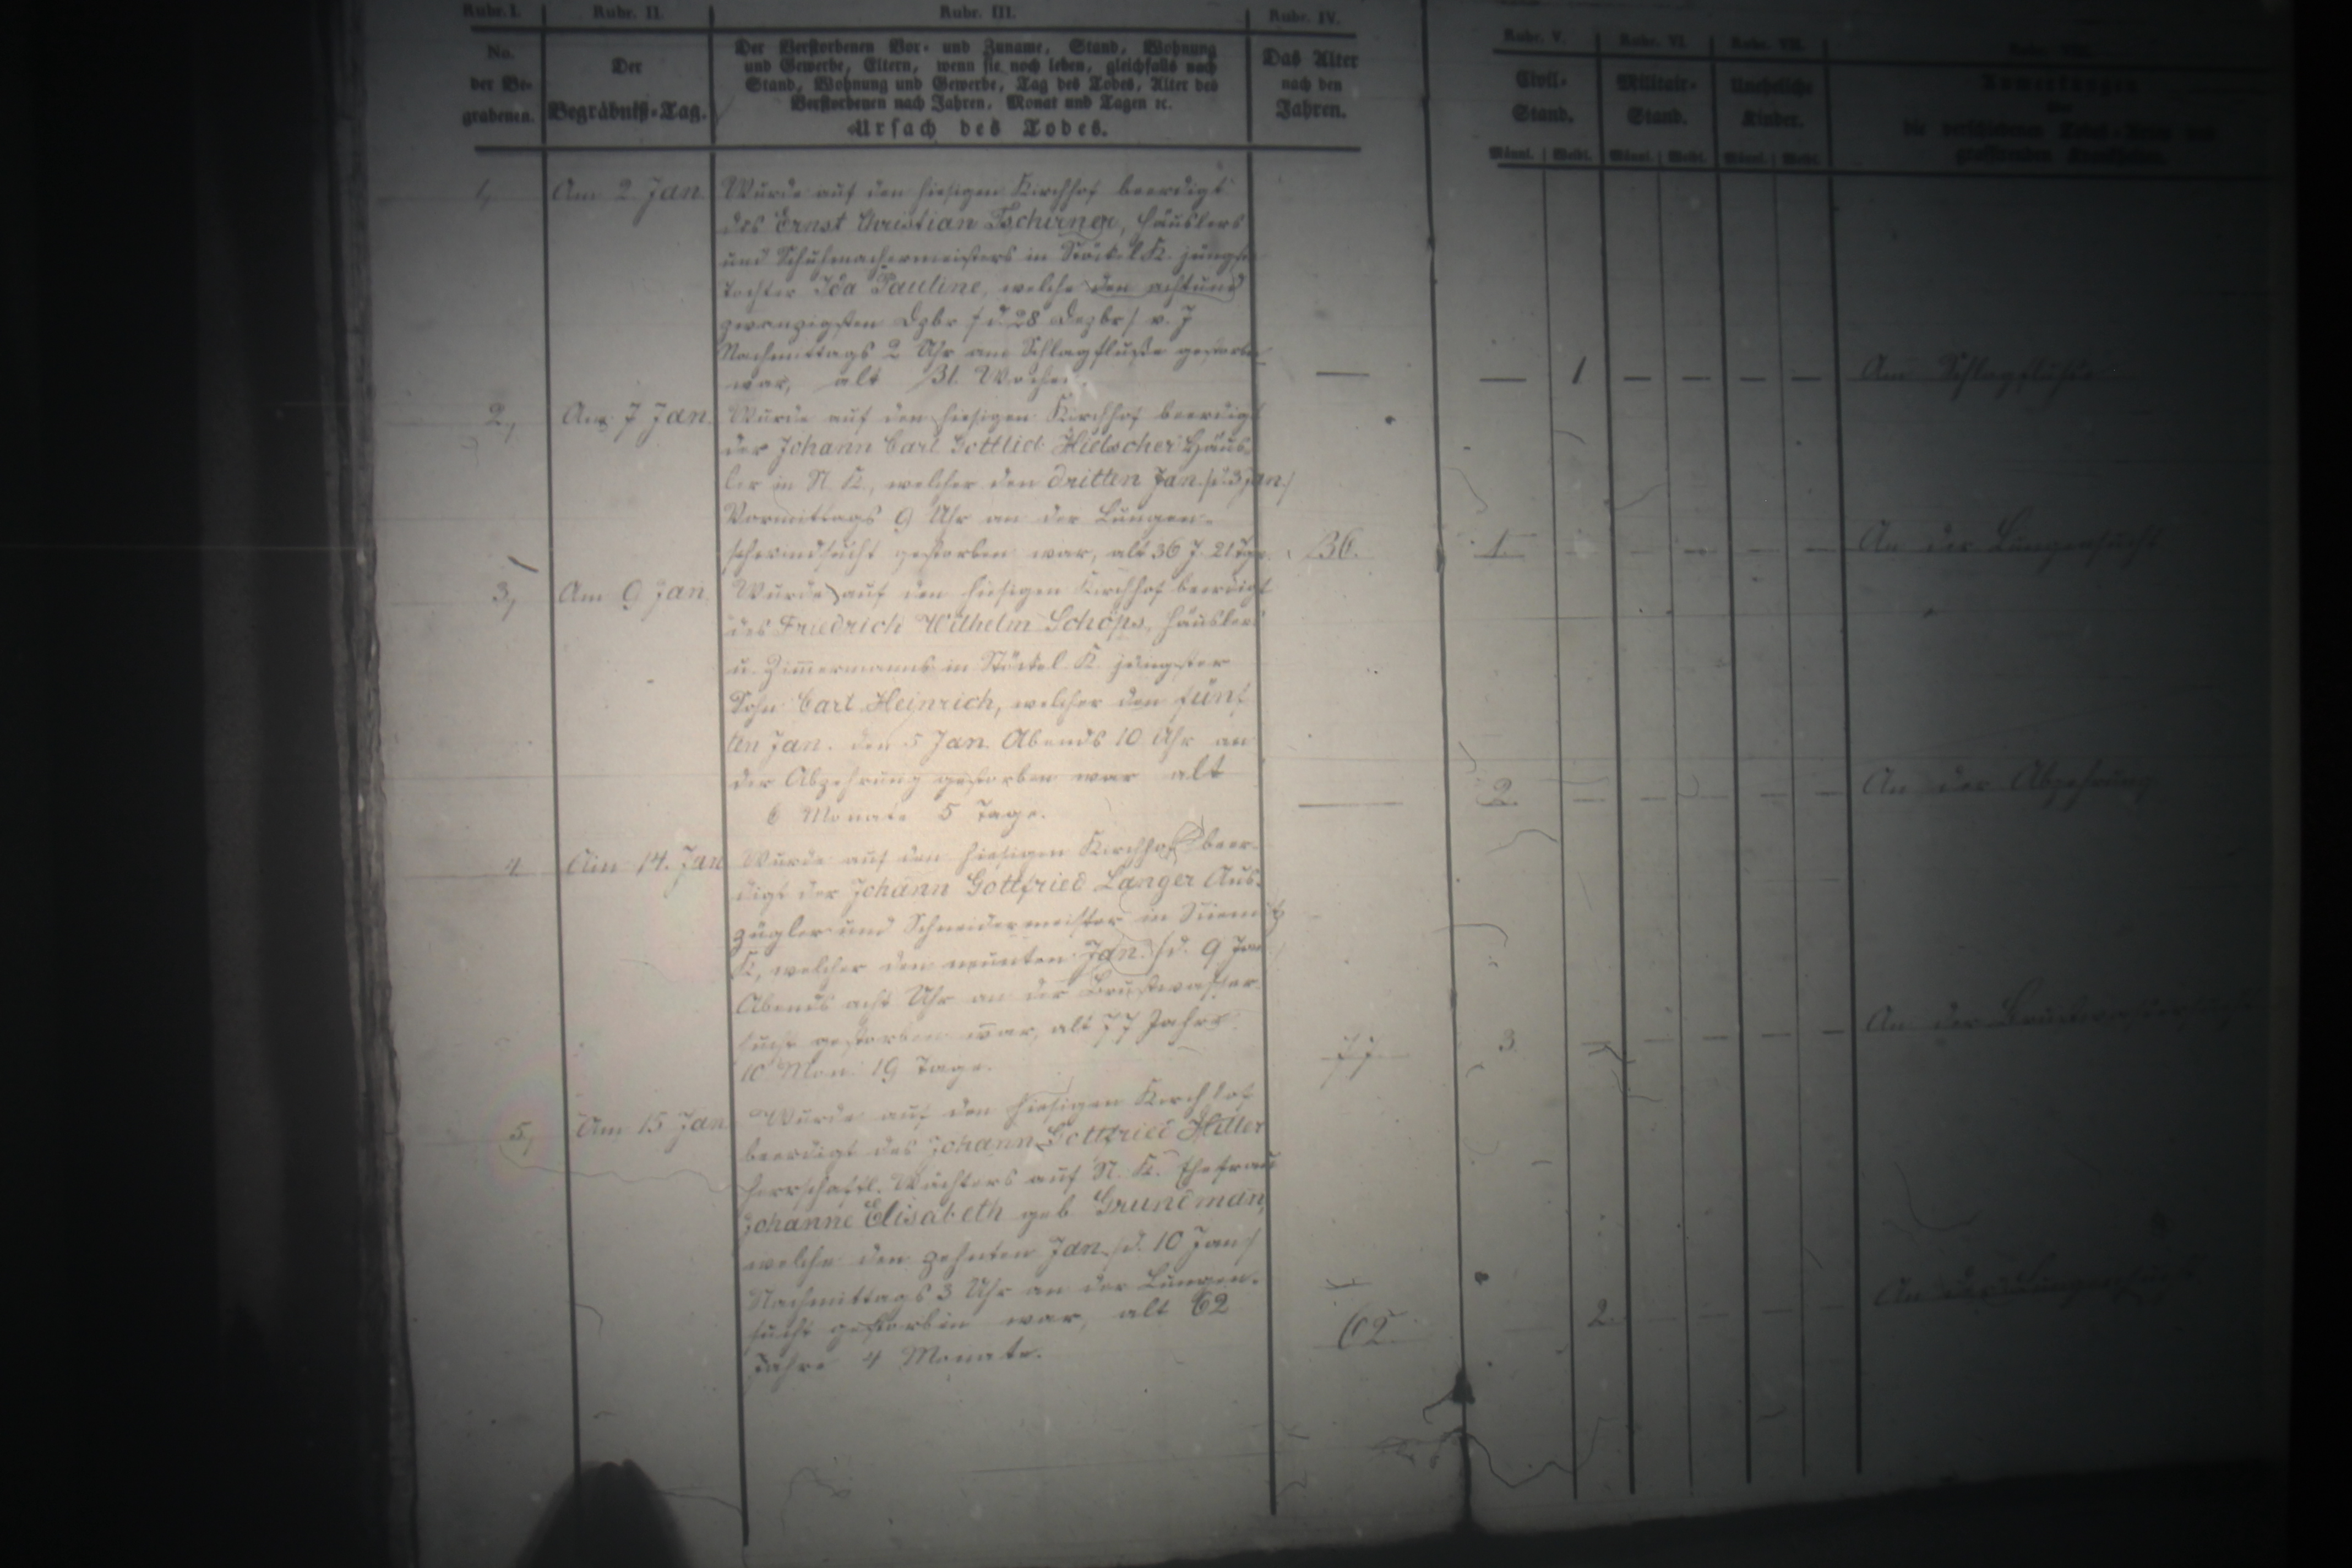 Rubr. I. Rubr. II. Rubr. III. Rubr. IV. Rubr. V. Rubr. VI. Rubr. VII.
No. der Be-grabenen.
Der Begräbniß-Tag.
Der Verstorbenen Vor- und Zuname, Stand, Wohnung
und Gewerbe, Eltern, wenn sie noch leben, gleichfalls nach
Stand, Wohnung und Gewerbe, Tag des Todes, Alter des
Verstorbenen nach Jahren, Monat und Tagen ec.
Ursach des Todes.
Das Alter
nach den
Jahren.
Civil-
Stand.
Militair-
Stand.
Uneheliche
Kinder.
Anmerkungen
die verschiedenen
Männl. Weibl. Männl. Weibl. Männl. Weibl.
1, Am 2 Jan. Wurde auf den hiesigen Kirchhof beerdigt
des Ernst Christian Tschirner, Häuslers
und Schuhmachermeisters in Stöckel K. jüngste
Tochter Ida Pauline, welche den achtund
zwanzigsten Dzbr /d. 28 Dezbr/ v. J
Nachmittags 2 Uhr am Schlagfluße gestorben
war, alt 31. Wochen — — 1 — — — — Am Schlagfluße
2, Am 7 Jan. Wurde auf den hiesigen Kirchhof beerdigt
der Johann Carl Gottlieb Hielscher Häus-
ler in N. K., welcher den dritten Jan. /d. 3 Jan./
Vormittags 9 Uhr an der Lungen-
schwindsucht gestorben war, alt 36 J. 21 Tge. 36. 1. — — — — An der Lungensucht
3, Am 9 Jan. Wurde auf den hiesigen Kirchhof beerdigt
des Friedrich Wilhelm Schöps, Häuslers
u. Zim̄ermanns in Stöckel K. jüngster
Sohn Carl Heinrich, welcher den fünf
ten Jan. den 5 Jan. Abends 10 Uhr an
der Abzehrung gestorben war alt
6 Monate 5 Tage. — 2. — — — — — An der Abzehrung
4 Am 14. Jan Wurde auf den hiesigen Kirchhof beer-
digt der Johann Gottfried Langer Aus-
zügler und Schneidermeister in
K, welcher den neunten Jan. /d. 9 Jan
Abends acht Uhr an der Brustwasser-
sucht gestorben war, alt 77 Jahre
10 Mon. 19 Tage. 77. 3 — — — — — An der Brustwassersucht
5, Am 15 Jan Wurde auf den hiesigen Kirchhof
beerdigt des Johann Gottfried Hiller
herrschaftl. Wächters auf N. K. Ehefrau
Johanne Elisabeth geb Grundman̄,
welche den zehnten Jan. /d. 10 Jan/
Nachmittags 3 Uhr an der Lungen-
sucht gestorben war, alt 62
Jahre 4 Monate. 62. 2. — — — — An der Lungensucht